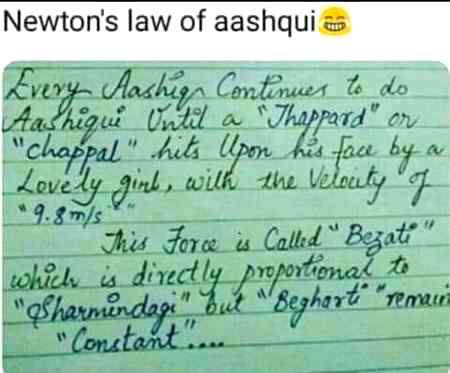 Newton's law of aashqui😂
Every Aashiqn Continues to do
Aashiqui Until a "Thappard" or
"chappal" hits Upon his face by a
Lovely girl, with the Velocity of
"9.8m/s""
This Force is Called "Bezati"
which is directly proportional to
"Sharmindagi" but "Begharti" remain
"Constant"....